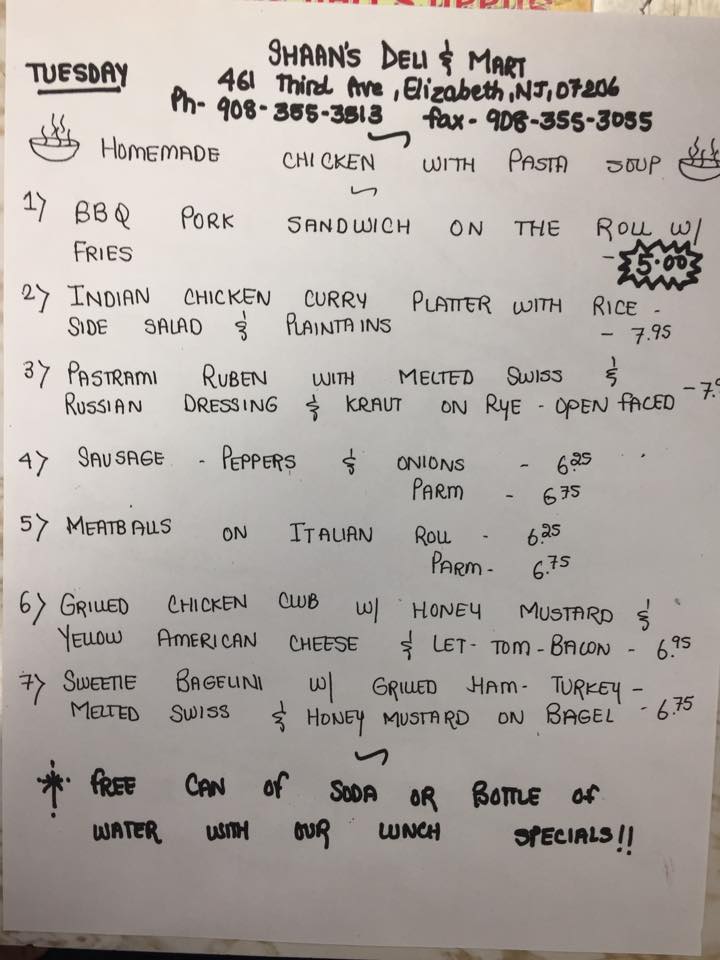 TUESDAY
SHAAN'S DELI & MART
461 Third Ave, Elizabeth, NJ, 07206
Ph- 908-355-3513 fax- 908-355-3055
HOMEMADE CHICKEN WITH PASTA SOUP
1) BBQ PORK SANDWICH ON THE ROLL W/
FRIES - 5.00
2) INDIAN CHICKEN CURRY PLATTER WITH RICE -
SIDE SALAD & PLAINTAINS - 7.95
3) PASTRAMI RUBEN WITH MELTED SWISS &
RUSSIAN DRESSING & KRAUT ON RYE - OPEN FACED
4) SAUSAGE - PEPPERS & ONIONS - 6.25
PARM - 6.75
5) MEATBALLS ON ITALIAN ROLL - 6.25
PARM - 6.75
6) GRILLED CHICKEN CLUB W/ HONEY MUSTARD &
YELLOW AMERICAN CHEESE & LET- TOM- BACON - 6.95
7) SWEETIE BAGELINI W/ GRILLED HAM- TURKEY -
MELTED SWISS & HONEY MUSTARD ON BAGEL - 6.75
* FREE CAN OF SODA OR BOTTLE OF
WATER WITH OUR LUNCH SPECIALS!!